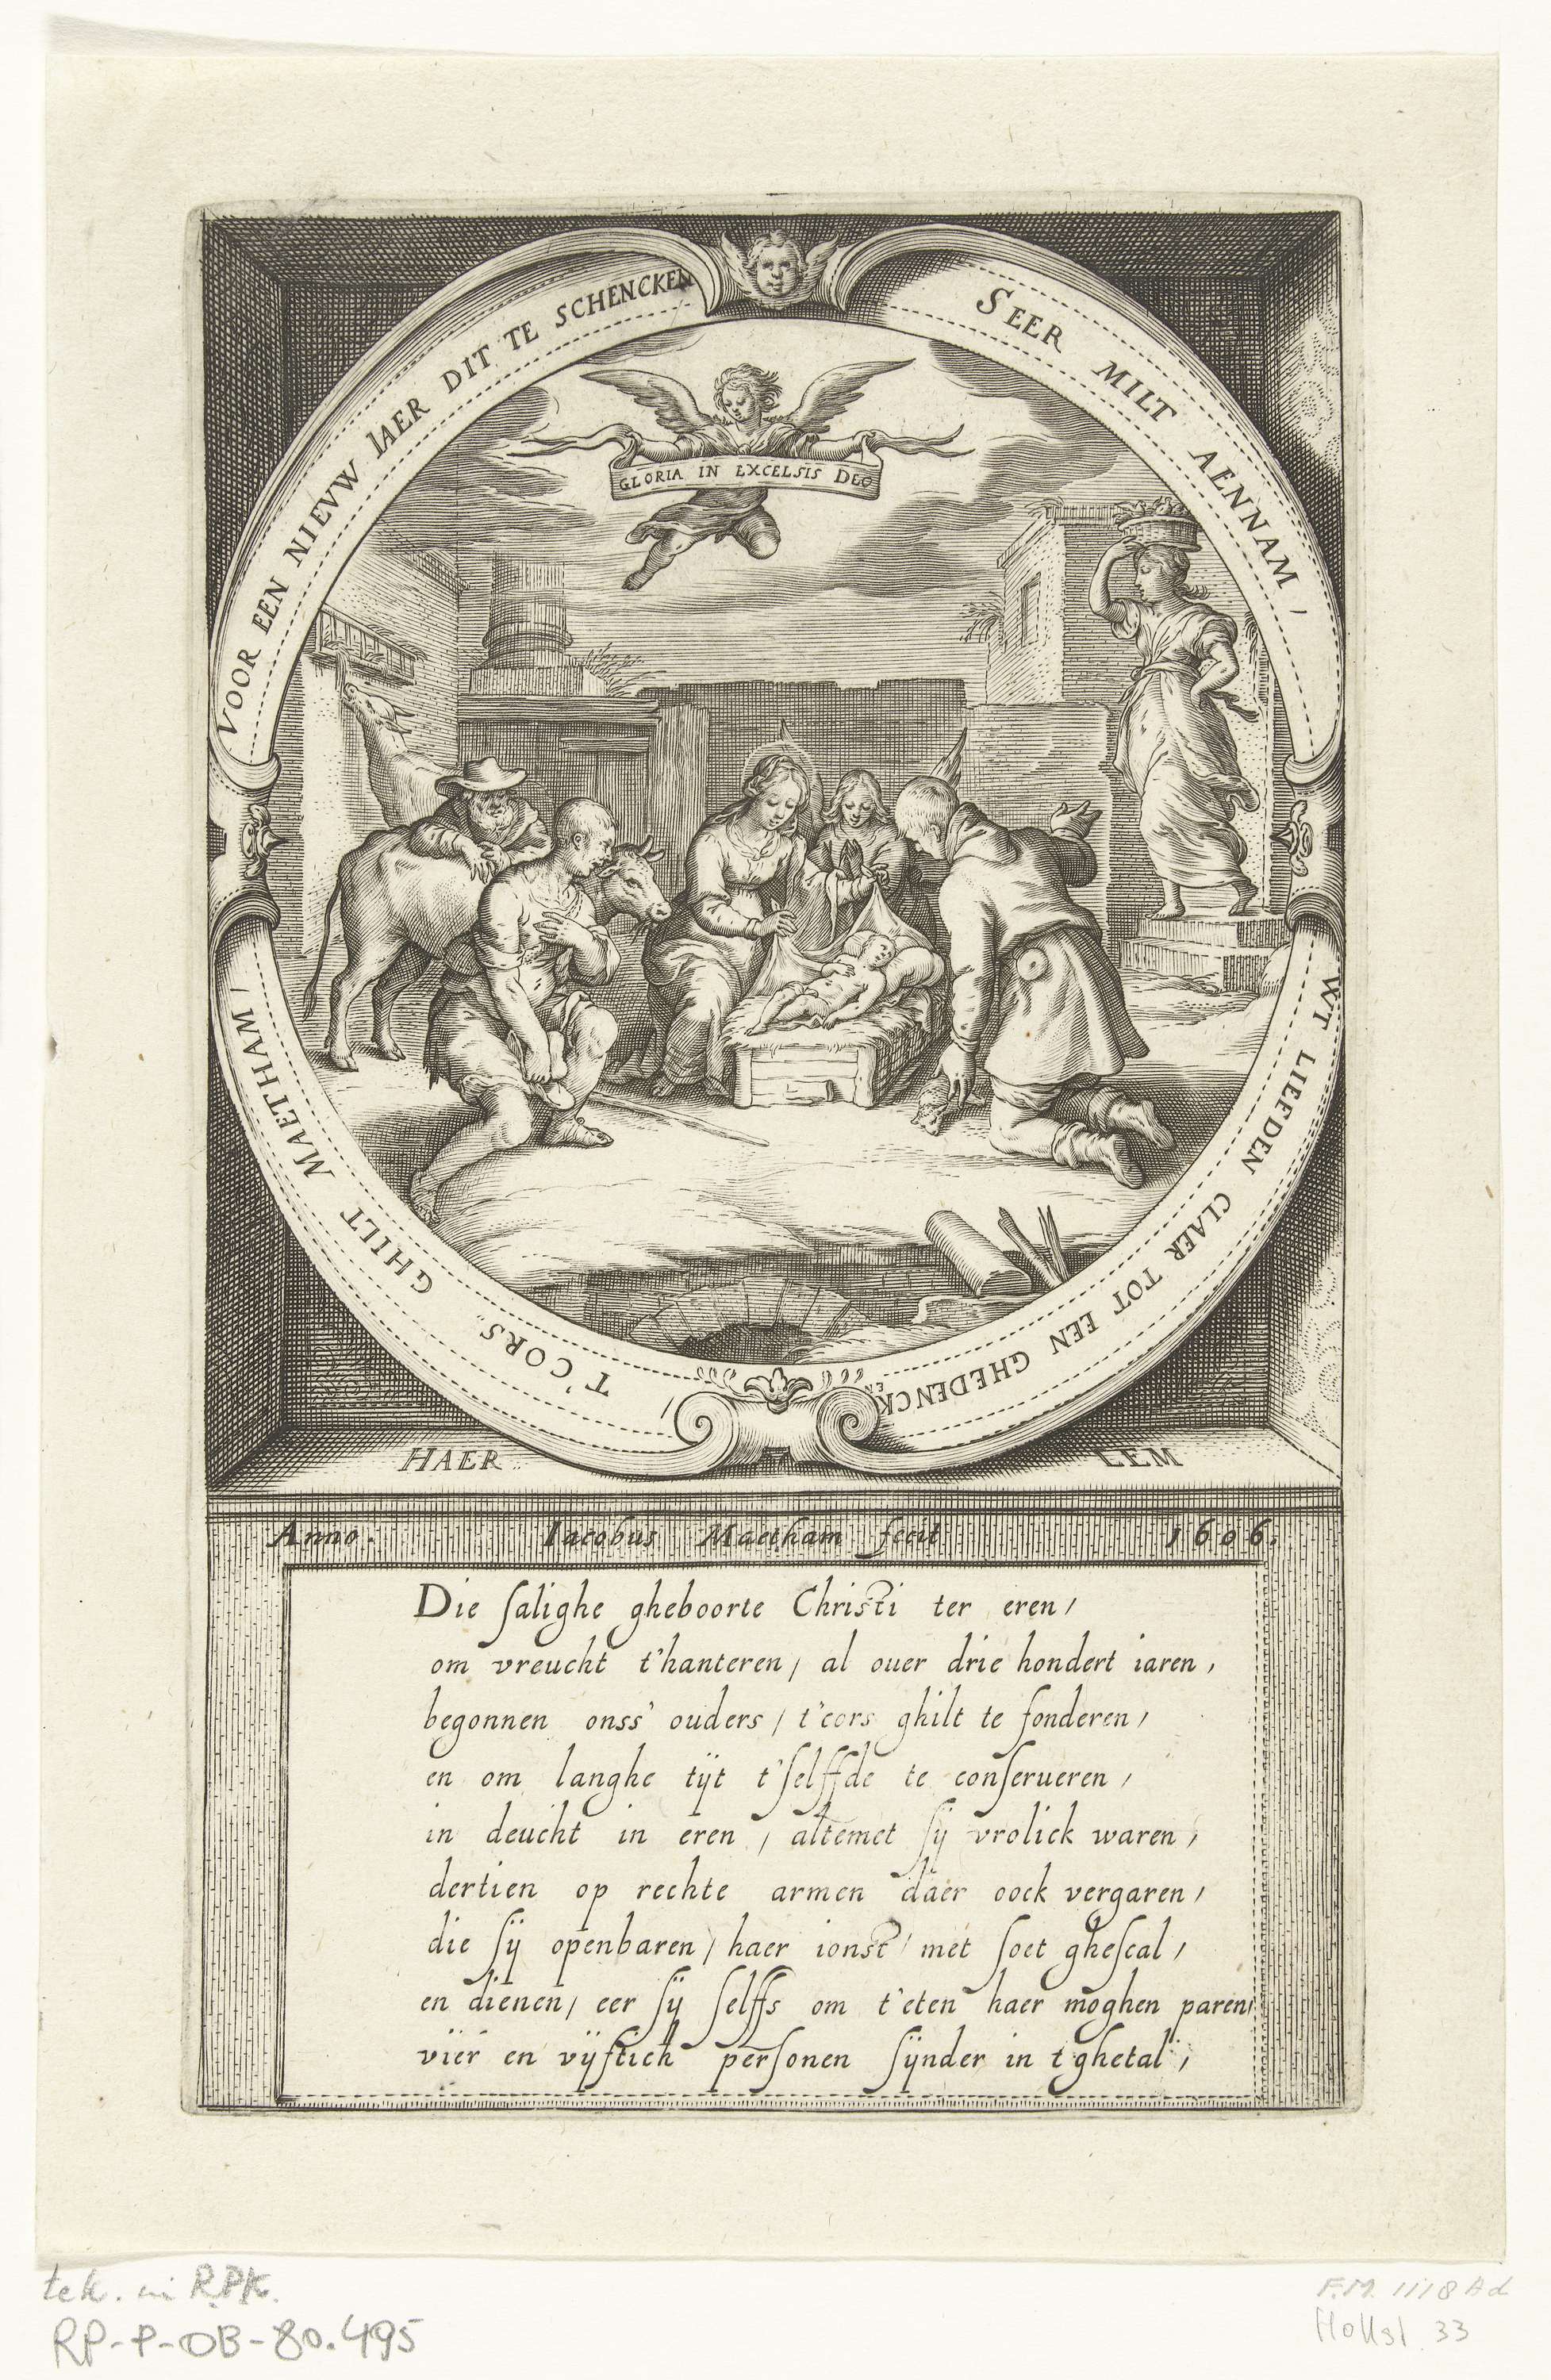 VOOR EEN NIEVW IAER DIT TE SCHENCKEN
SEER MILT AENNAM,
WT LIEFDEN CLAER TOT EEN GHEDENCKEN
T'CORS GHILT MAETHAM /
GLORIA IN EXCELSIS DEO
HAER LEM
Anno. Iacobus Maetham fecit 1606.
Die salighe gheboorte Christi ter eren /
om vreucht t'hanteren / al ouer drie hondert iaren ,
begonnen onss' ouders / t'cors ghilt te fonderen /
en om langhe tijt t'selffde te conserueren /
in deucht in eren / altemet sij vrolick waren /
dertien op rechte armen daer oock vergaren /
die sij openbaren / haer ionst / met soet ghescal /
en dienen / eer sij selffs om t'eten haer moghen paren /
vier en vijftich personen sijnder in t'ghetal ;
tek. in RPK.
RP-P-OB-80.495
F.M. 1118 Ad
Hollst. 33